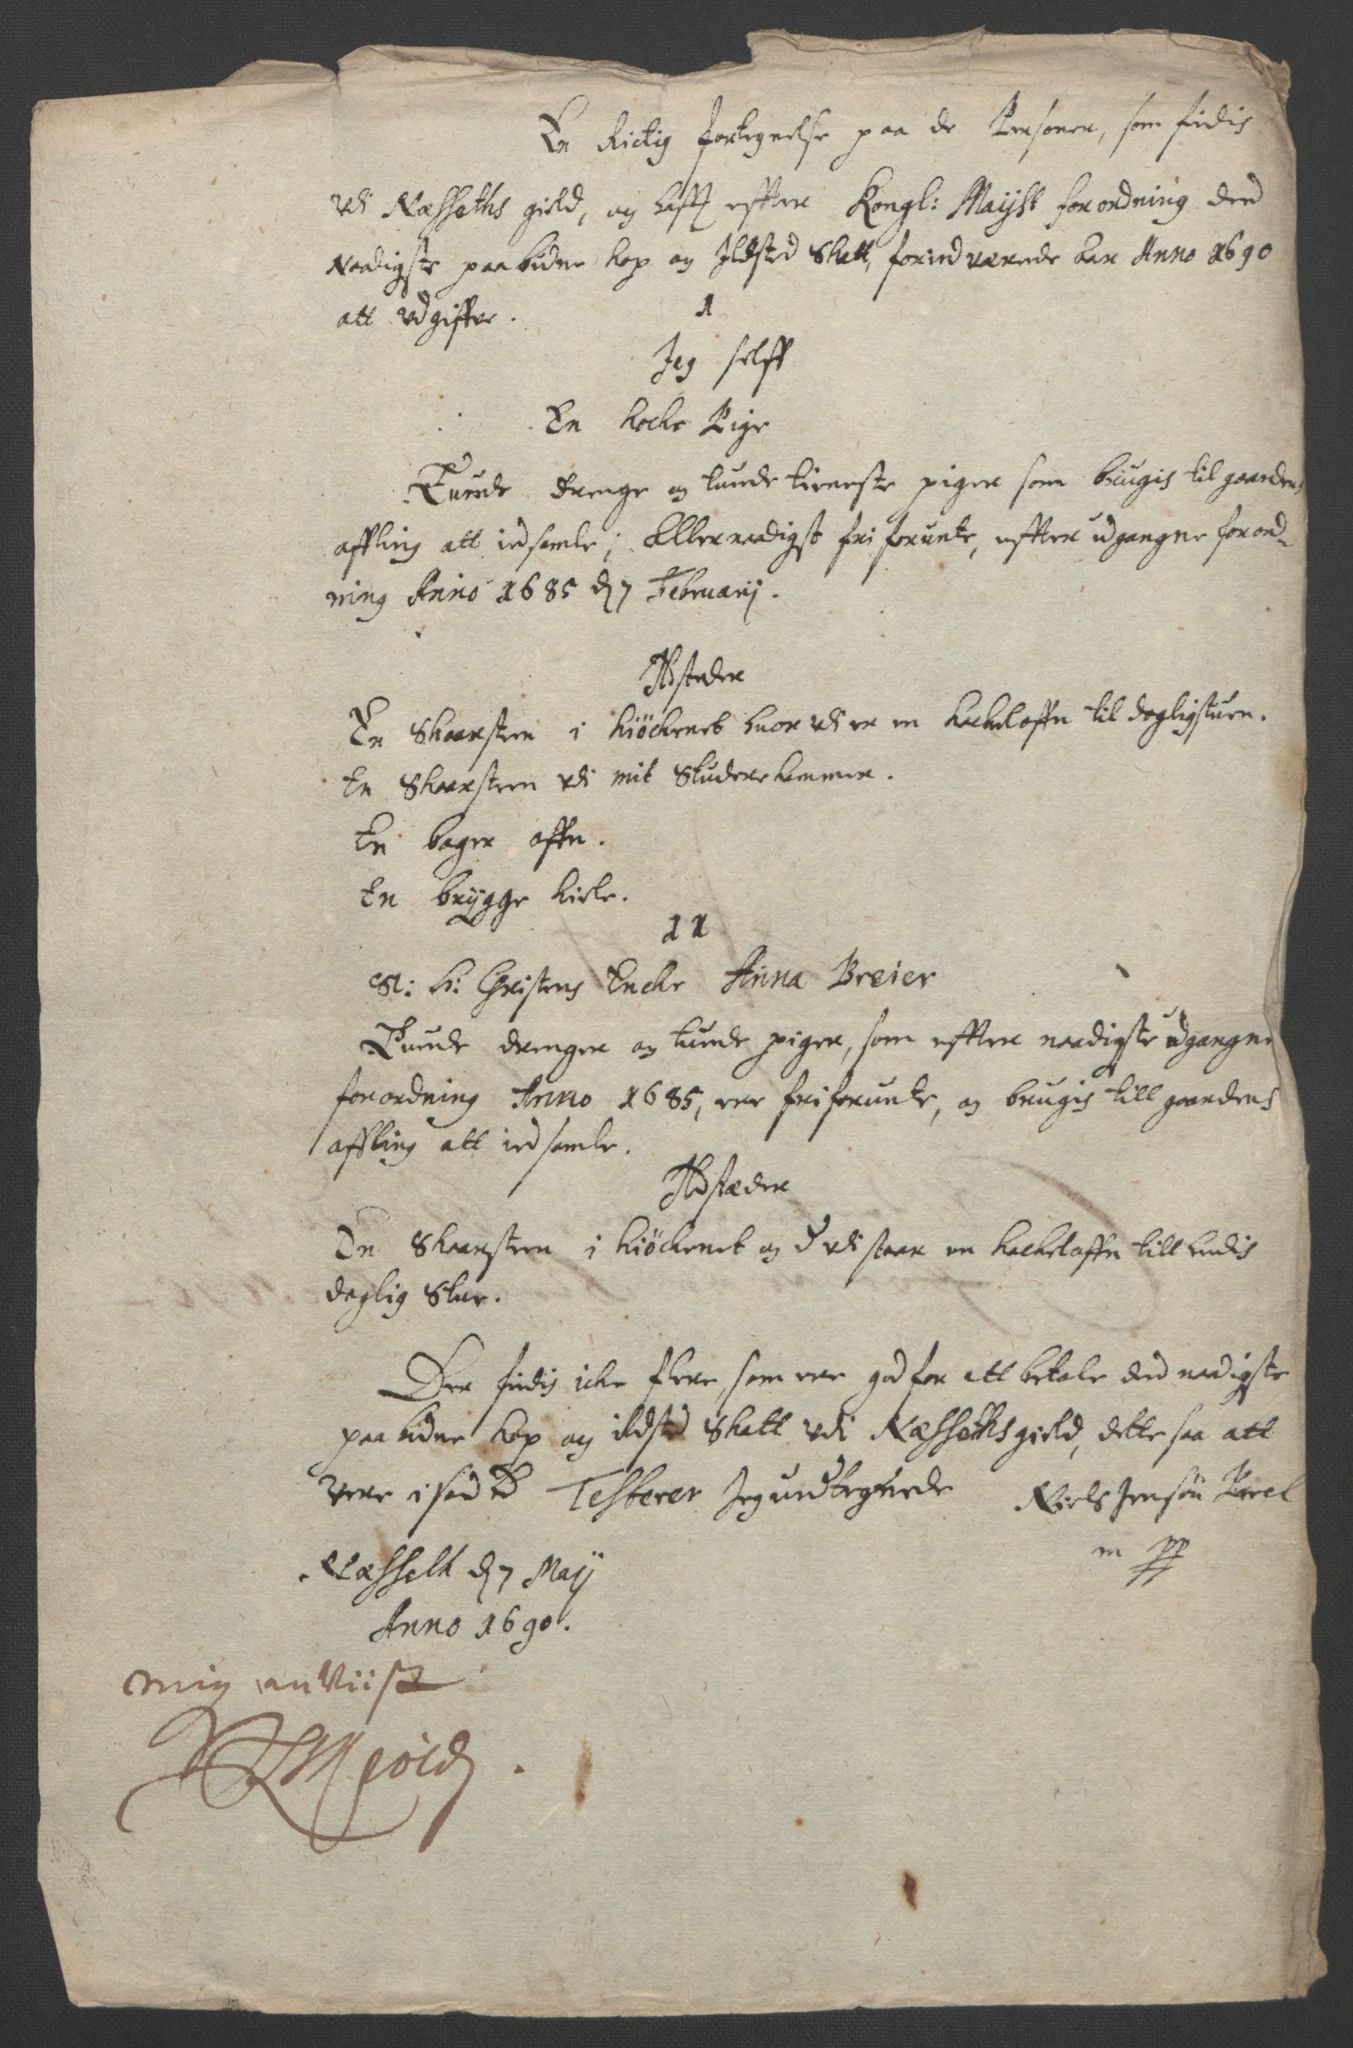 En Rictig fortegnelse paa de Personer, som findis
udi Næsseths gield, og haffr effter Kongl: Mayst forordning den
Naadigste paabudne kop og Ildsted Skatt, forindværende aar Anno 1690
att udgiffve.
1
Jeg selff
En kocke Pige
Tuende drenge og tuende tieneste piger som brugis til gaardens
affling att indsamle; Allernaadigst friforunte, effter udgangne forord-
ning Anno 1685 d 7 Februarij.
Ildsteder
En Skaarsteen i kiöckenet huor udi er en kackeloffn til dagligstuen.
En Skaarsteen udi mit Studerekammer.
En bager offn.
En brygge kiele.
11
Sl: H: Christens Encke Anna Breier
Tuende drenger og tuende piger, som effter naadigste udgangne
forordning Anno 1685, ere friforunte, og brugis till gaardens
affling att indsamle.
Ildstæder
En Skaarsteen i kiöckenet og d udi staar en kackeloffn till hendis
daglig Stue.
Der findis icke flere, som ere god for att betale den nadigste
paabudne kop og ildsted Skatt udi Næssethsgield, dette saa att
vere i sandhed Testerer Jeg undtegnede Niels Jensön
m pp
Næssett d 7 Maij
Anno 1690.
mig anviist